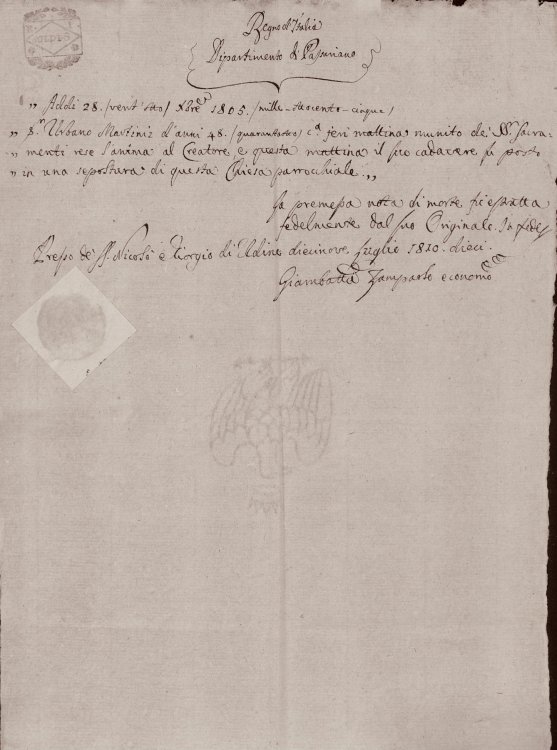 Regno d'Italia
Dipartimento di Passariano
„ Addi 28. /vent'otto/ Xbre 1805. /mille-ottocento-cinque/
„ Sr. Urbano Martinis d'anni 48. /quarantotto/ ca. jeri mattina munito de' SS. Sacra-
„ menti rese l'anima al Creatore, e questa mattina il suo cadavere fu posto
„ in una sepoltura di questa Chiesa parrocchiale. „
La premessa nota di morte fu estratta
fedelmente dal suo Originale. In fede
Presso de' SS. Nicolò e Giorgio di Udine diecinove Luglio 1810. dieci.
Giambatta Zamparo economo